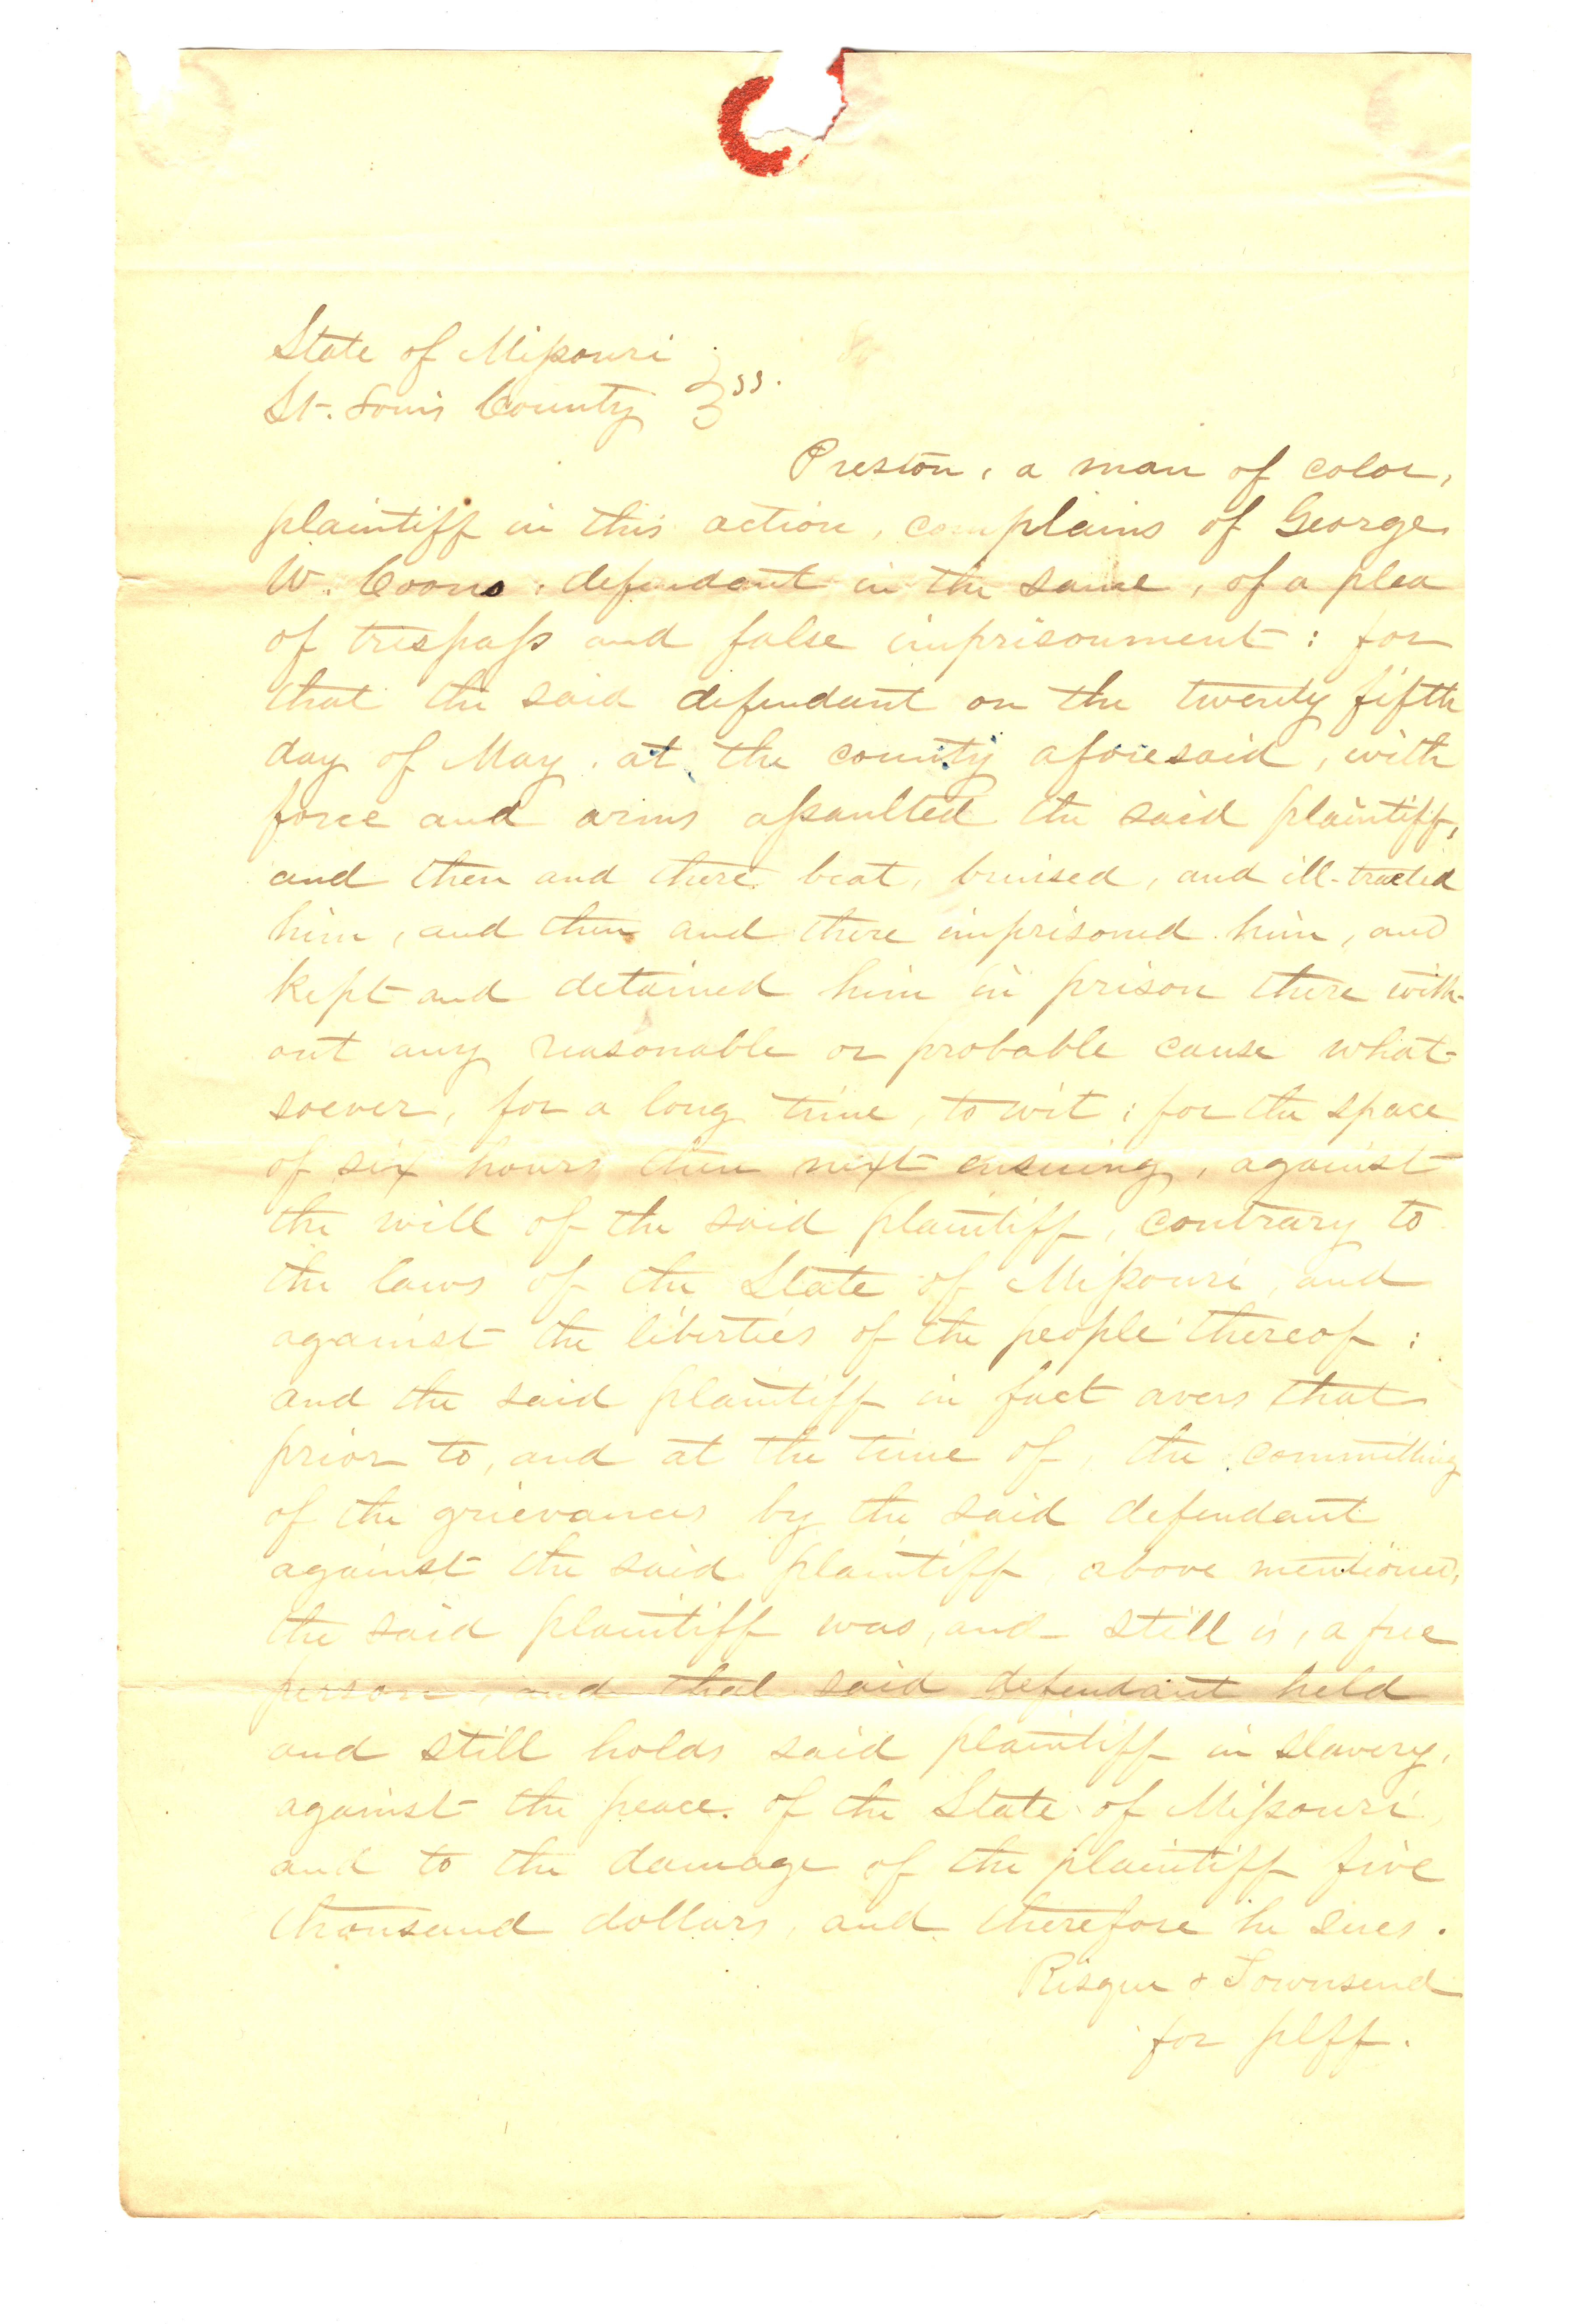 State of Missouri
St. Louis County } ss.
Preston, a man of color,
plaintiff in this action, complains of George
W. Coons, defendant in the same, of a plea
of trespass and false imprisonment: for
that the said defendant on the twenty fifth
day of May, at the county aforesaid, with
force and arms assaulted the said plaintiff,
and then and there beat, bruised, and ill-treated
him, and then and there imprisoned him, and
kept and detained him in prison there with-
out any reasonable or probable cause what-
soever, for a long time, to wit: for the space
of six hours then next ensuing, against
the will of the said plaintiff, contrary to
the laws of the State of Missouri, and
against the liberties of the people thereof:
and the said plaintiff in fact avers that
prior to, and at the time of, the committing
of the grievances by the said defendant
against the said plaintiff above mentioned,
the said plaintiff was, and still is, a free
person, and that said defendant held
and still holds said plaintiff in slavery,
against the peace of the State of Missouri,
and to the damage of the plaintiff five
thousand dollars, and therefore he sues.
Risque & Townsend
for plff.